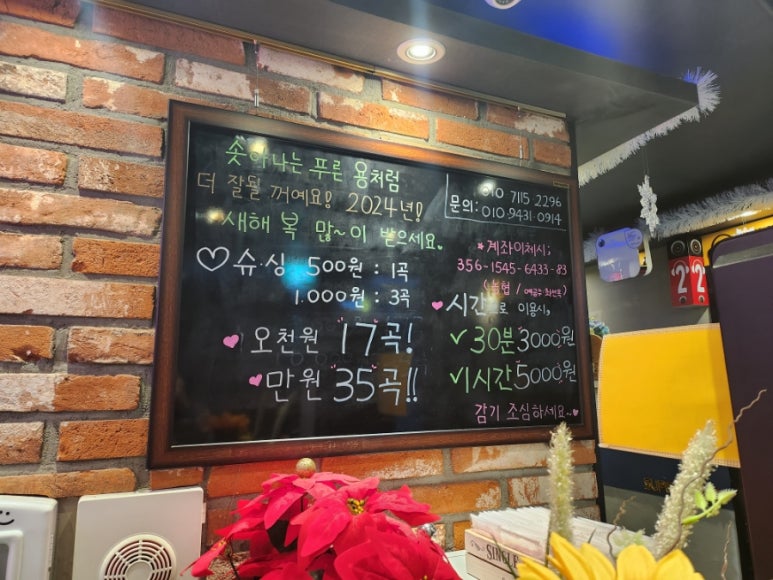 솟아나는 푸른 용처럼
더 잘될 꺼예요! 2024년!
새해 복 많~이 받으세요
♡슈싱 500원 : 1곡
1.000원 : 3곡
오천원 17곡!
만원 35곡!!
010 7115 2296
문의: 010-9431-0914
*계좌이체시;
356-1545-6433-83
(농협 /
시간으로 이용시,
✓30분 3000원
✓1시간 5000원
감기 조심하세요~
2 2
SINGLE